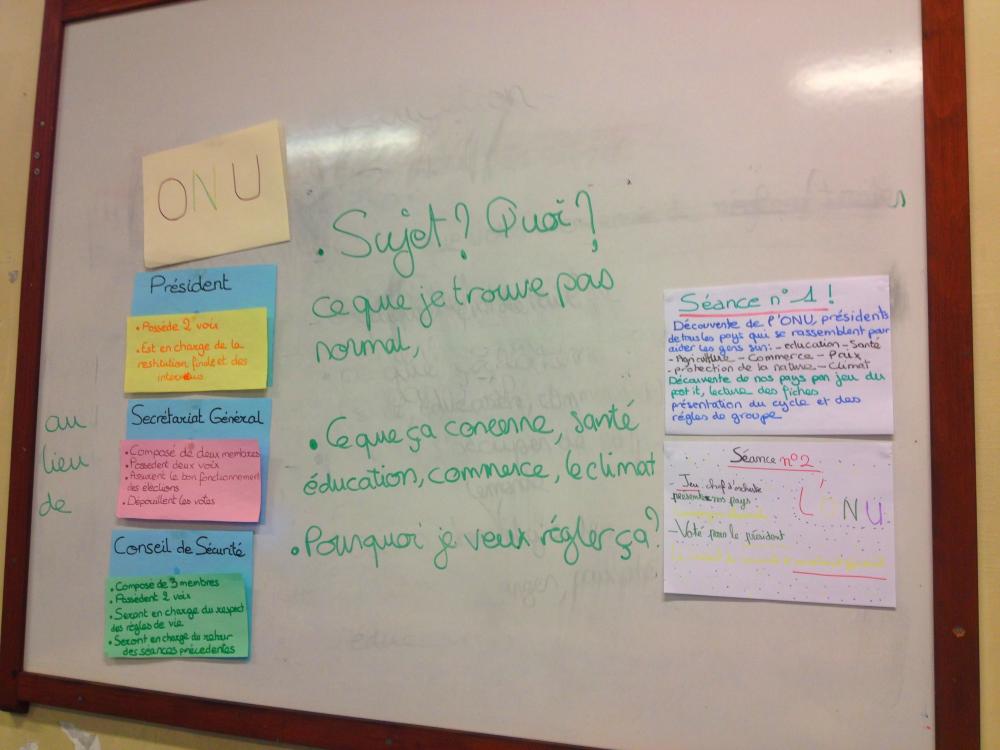 ONU
Président
• Possède 2 voix
• Est en charge de la
restitution finale et des
Secrétariat Général
• Composé de deux membres
• Possèdent deux voix
• Assurent le bon fonctionnement
des elections
• Dépouillent les votes
Conseil de Sécurité
• Composé de 3 membres
• Possèdent 2 voix
• Seront en charge du respect
des règles de vie
• Seront en charge du retour
des séances précédentes
au
lieu
de
• Sujet ? Quoi ?
ce que je trouve pas
normal,
• Ce que ça concerne, santé
éducation, commerce, le climat
• Pourquoi je veux régler ça ?
Séance n° 1 !
Découverte de l'ONU, présidents
de tous les pays qui se rassemblent pour
aider les gens sur : - education - Santé
- Agriculture - Commerce - Paix
- protection de la nature - Climat
Découverte de nos pays par jeu du
post it, lecture des fiches
présentation du cycle et des
règles de groupe
Séance n°2
- Jeu chef d'orchestre
nos pays
L'ONU
- Voté pour le président